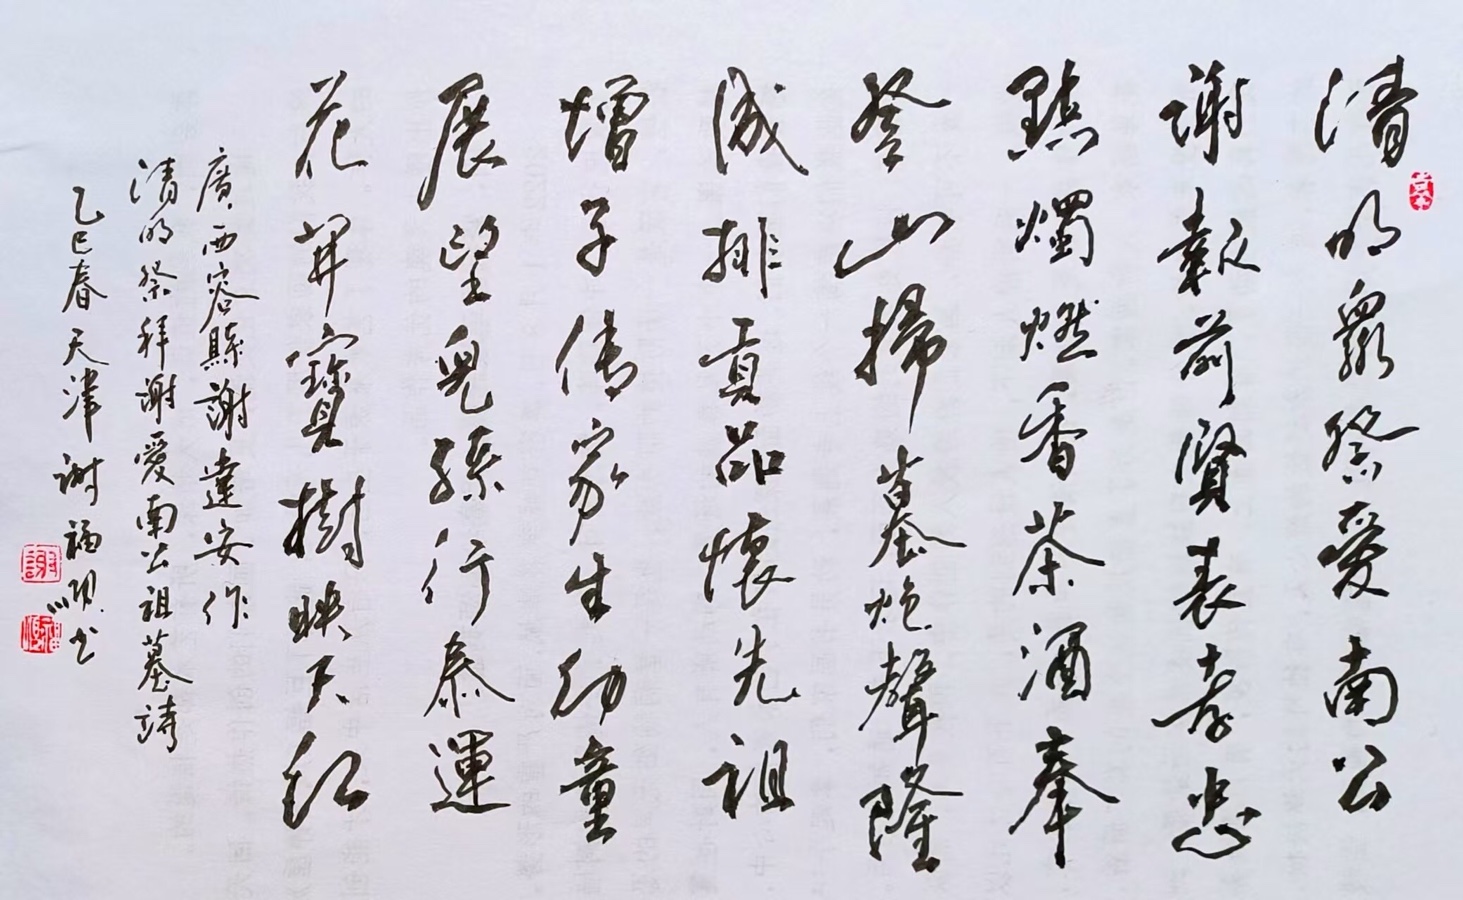 清明眾祭愛南公
謝報前賢表孝忠
點燭燃香茶酒奉
登山掃墓炮聲隆
誠排真品懷先祖
增子傳家生幼童
展望兒孫行泰運
花開寶樹映天紅
廣西容縣謝達安作
清明祭拜謝愛南公祖墓詩
乙巳春天津謝福順書